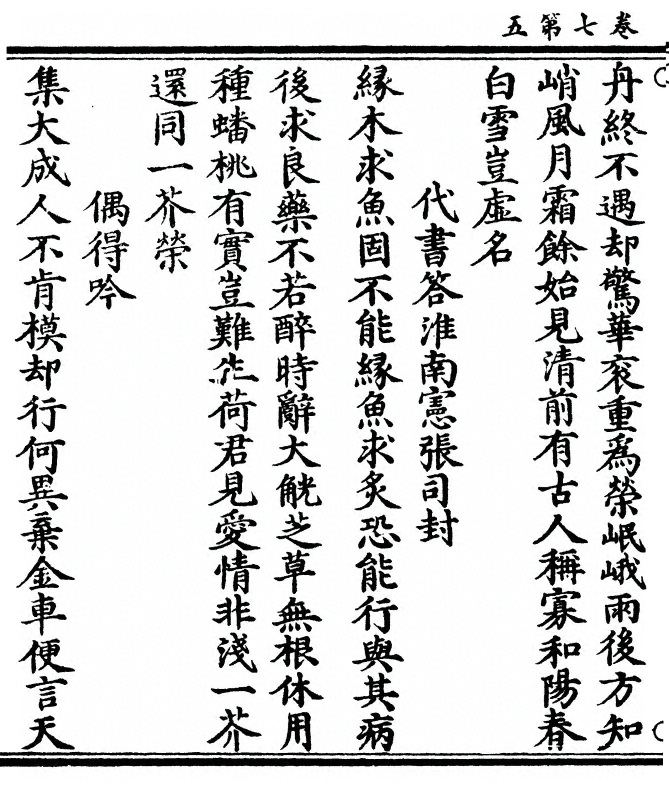 卷七第五
丹終不遇却驚華衮重爲榮岷峨雨後方知
峭風月霜餘始見清前有古人稱寡和陽春
白雪豈虛名
代書答淮南憲張司封
緣木求魚固不能緣魚求炙恐能行與其病
後求良藥不若醉時辭大觥芝草無根休用
種蟠桃有實豈難荷君見愛情非淺一芥
還同一芥榮
偶得吟
集大成人不肯模却行何異棄金車便言天